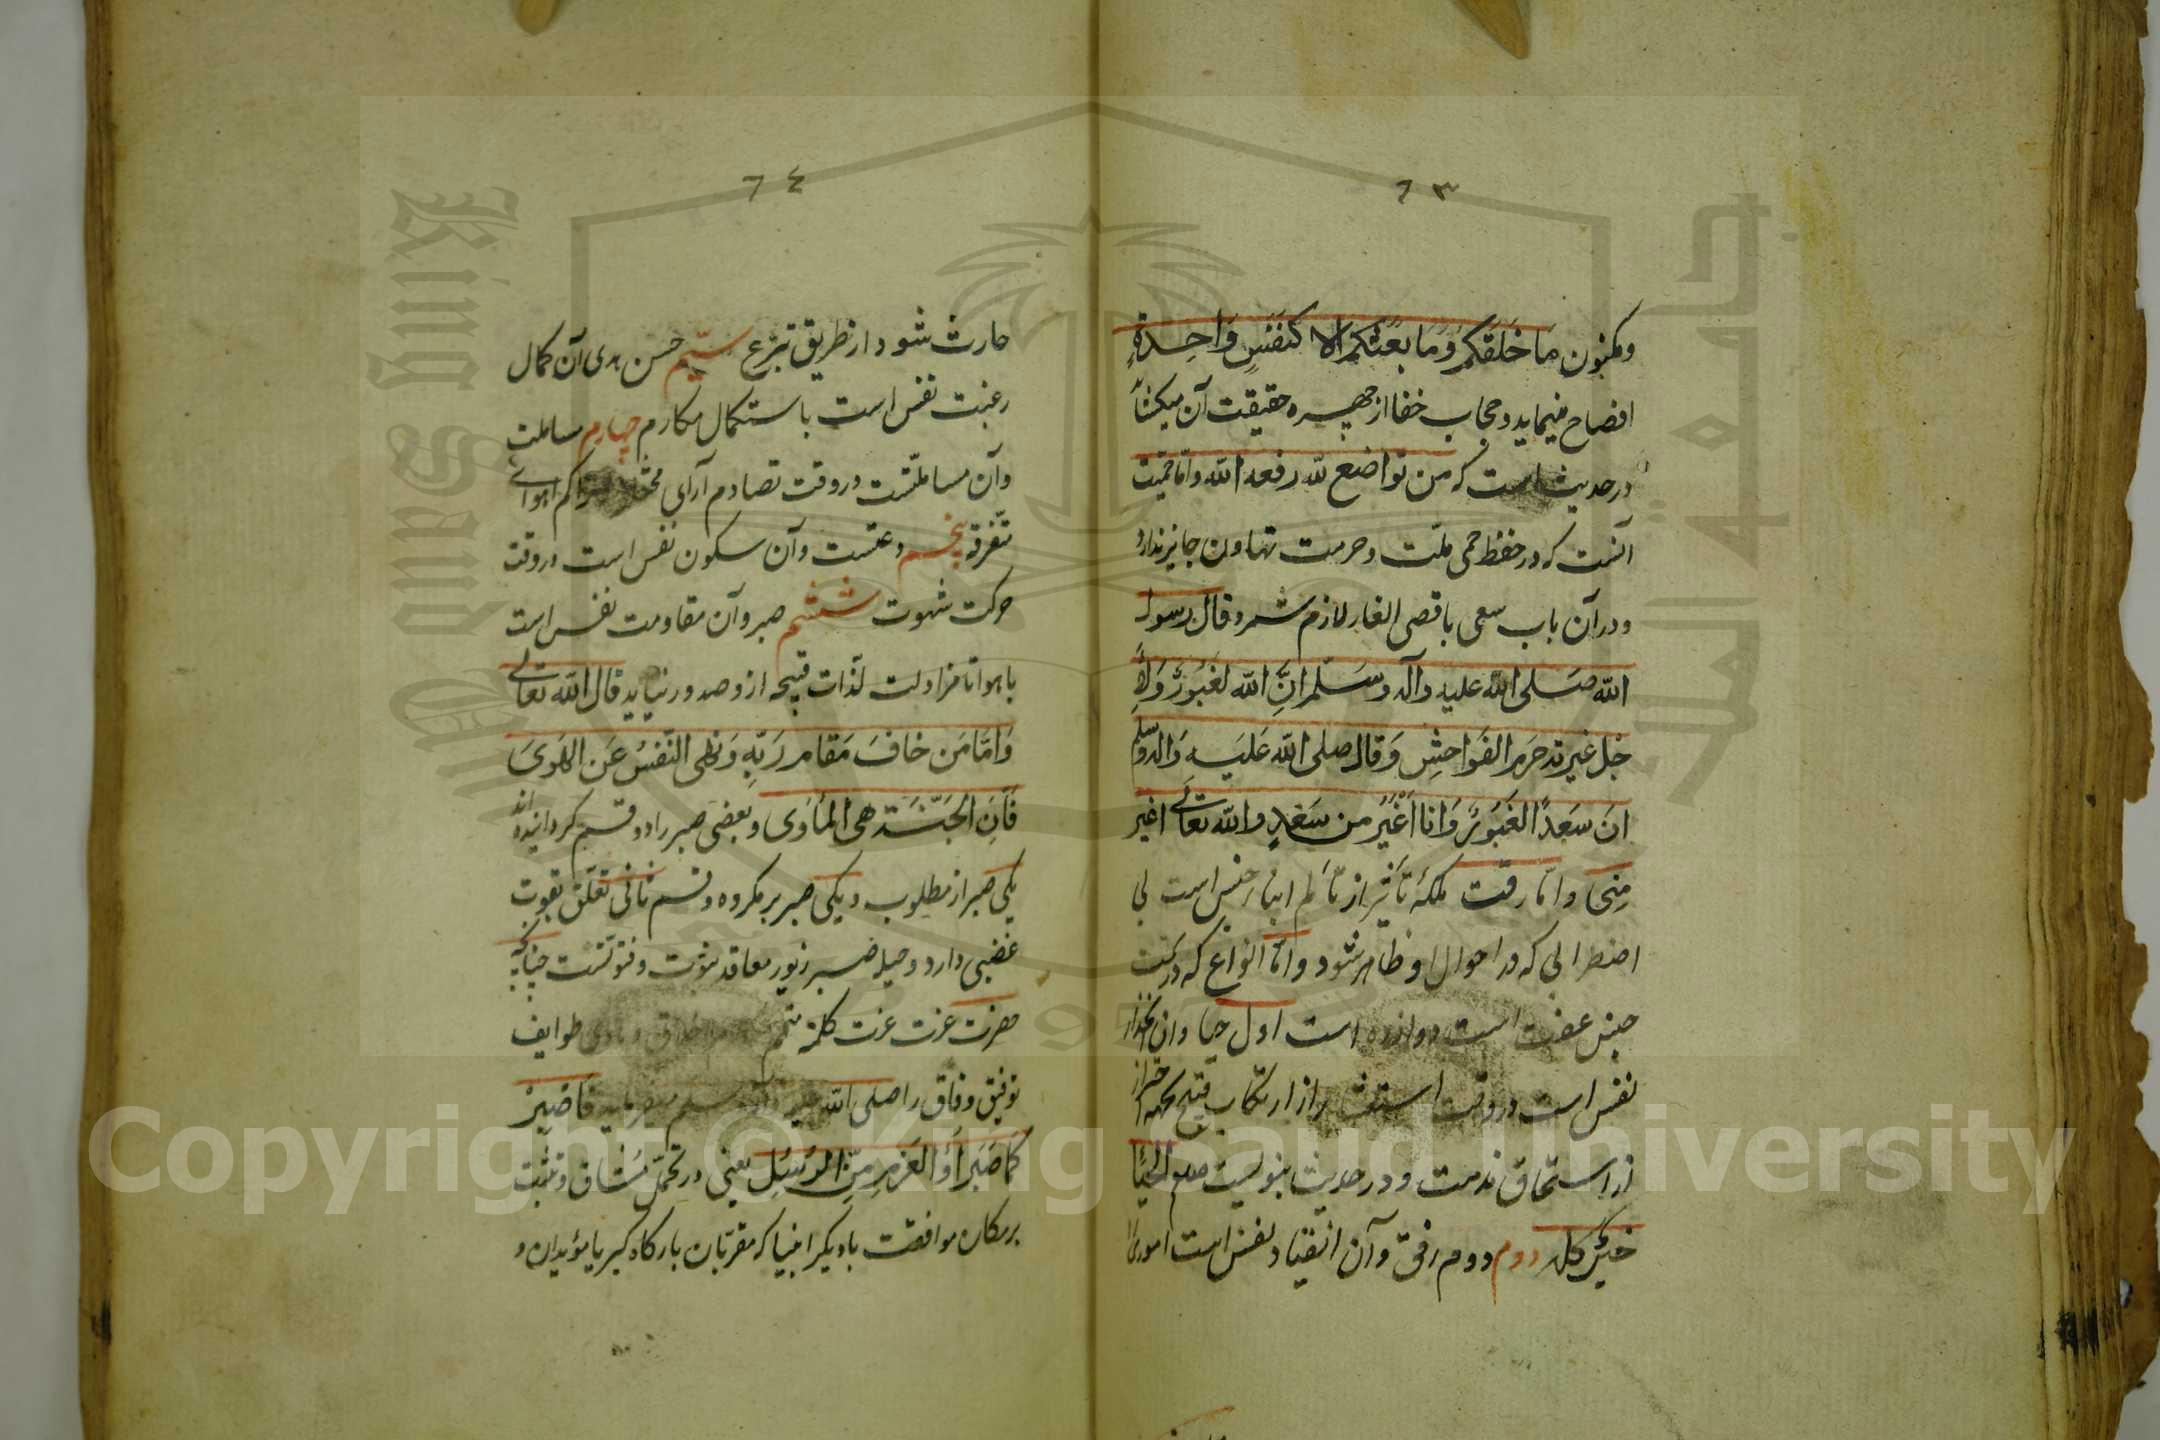 ٦٣
و مکنون مَا خَلَقَکُم وَمَا بَعَثَکُم الا کَنَفسٍ وَاحِدَةٍ
افصاح مینماید و حجاب خفا از چهره حقیقت آن میکشاید
در حدیث است که من تواضع لله رفعه الله و اما حمیت
آنست که در حفظ حمی ملت و حرمت تهاون جایز ندارد
و در آن باب سعی باقصی الغایه لازم شمرد قال رسول
الله صَلی الله علیه وآله وسَلّم اِنَّ الله لغَیُورٌ وَلِاَ
جل غیرته حرم الفَوَاحِش وَقال صلی الله عَلَیه وَاله وسلم
انَ سَعَداً لغَیُورٌ وَانا اَغیَرُ من سَعَدٍ والله تعالی اغیر
مِنی و اما رقت ملکهٔ تأثر از تألم ابناء جنس است بی
اضطرابی که در احوال او ظاهر شود و اما انواع که در تحت
جنس عفت است دوازده است اول حیا و آن انحذار
نفس است در وقت استشعار از ارتکاب قبیح بجهة احتراز
از استحقاق مذمت و در حدیث نبویست صلعم الحَیَاءُ
خَیرٌ کله دوم دوم رفق و آن انقیاد نفس است اموری را
٦٤
حارث شود از طریق تبرع سیّم حسن هدی آن کمال
رغبت نفس است باستکمال مکارم چهارم مسالمت
و آن مسالمتست در وقت تصادم آرای اهوای
متفرقه پنجم دعتست و آن سکون نفس است در وقت
حرکت شهوت ششم صبر و آن مقاومت نفس است
با هوا تا مزاولت لذات قبیحه ازو صدور نیابد قال الله تعالی
وَامَّا مَن خافَ مَقامَ رَبّهِ وَنَهَی النَّفسَ عَن الهَوَیَ
فَاَنَ الجَنَّةَ هِی المَأوَی و بعضی صبر را دو قسم کردانیده اند
یکی صبر از مطلوب و یکی صبر بر مکروه و قسم ثانی تعلق بقوت
غضبی دارد و حیله صبر زیور معاقد نبوت و فتوتست چنانچه
حضرت عزت عزت کلمته طوایف
توفیق و فاق را صلی الله میفرماید فَاصَبِرْ
کَمَا صَبَرَ اُوَلُو العَزمِ مِنَ الرُسُلِ یعنی در تحمل مشاق و تثبت
بر مکاره موافقت با دیکر انبیا که مقربان بارکاه کبریا مؤیدان و